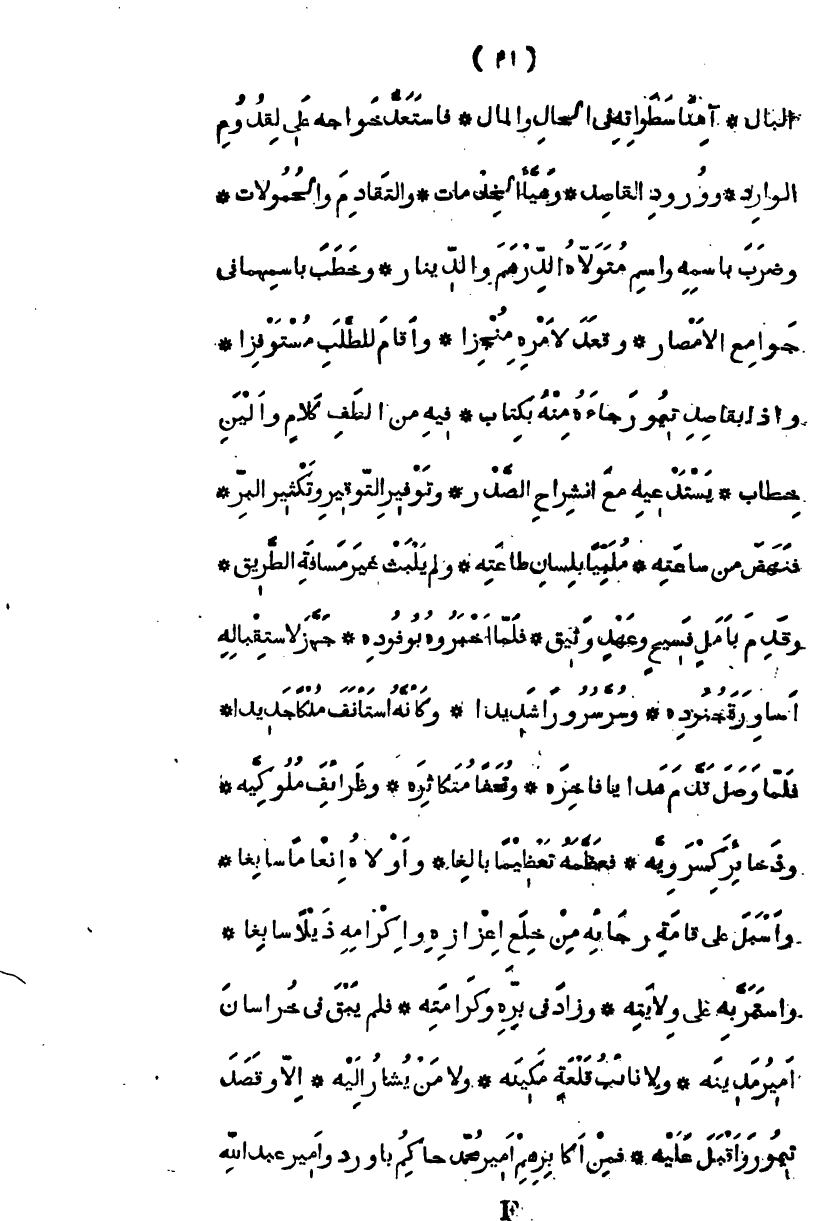 ( ٤١ )
البال * آمِنًا سَطَواتِه فى الحالِ والمال * فاستَعَدَّ خَواجه عَلِى لِقُدُومِ
الوارِد * ووُرودِ القاصِد * وهَيَّأَ الخِدْمات * والتَقادِمَ والحُمُولات *
وضَرَبَ باسمِهِ واسمِ مُتَوَلّاهُ الدِّرْهَمَ والدِّينار * وخَطَبَ باسمِهما فى
جَوامِعِ الامْصار * وقعَدَ لامْرِهِ مُنْجِزا * وأقامَ للطَّلَبِ مُسْتَوْفِزا *
واذا بقاصِدِ تِيمُورَ جاءَهُ مِنْهُ بكِتاب * فيهِ من الطَفِ كَلامٍ والْيَنِ
خِطاب * يَسْتَدْعيهِ مَعَ انشِراحِ الصَّدْر * وتَوْفيرِ التّوقيرِ وتَكْثيرِ البِرّ *
فنَهَضَ من ساعَتِه * مُلَبِّيًا بلِسانِ طاعَتِه * ولم يَلْبَثْ غيرَ مَسافَةِ الطَّرِيق *
وقَدِمَ بأمَلٍ فَسِيحٍ وعَهْدٍ وَثيق * فلَمّا اَخْبَرُوهُ بوُفُودِه * جَهَّزَ لاستِقْبالِهِ
اَساوِرَةَ جُنُودِه * وسُرَّ سُرُورًا شَدِيدا * وكأنَّهُ اسْتَأنَفَ مُلْكًا جَدِيدا *
فلَمّا وَصَلَ قَدَّمَ هَدايا فاخِرَه * وتُحَفًا مُتَكاثِرَه * وظَرائفَ مُلُوكِيَّه *
وذَخائرَ كِسْرَوِيَّه * فعَظَّمَهُ تَعْظِيمًا بالِغا * واَوْلاهُ اِنْعامًا سابِغا *
واَسْبَلَ على قامَةِ رَجائِهِ مِنْ خِلَعِ اِعْزازِهِ واِكْرامِهِ ذَيْلًا سابِغا *
واستَمَرَّ بِهِ على وِلايَتِه * وزادَ فى بِرِّهِ وكَرامَتِه * فلم يَبْقَ فى خُراسانَ
اَمِيرُ مَدِينَه * ولا نائبُ قَلْعَةٍ مَكِينَه * ولا مَنْ يُشارُ اِلَيْه * اِلّا وقَصَدَ
تِيمُورَ واَقْبَلَ عَلَيْه * فمِنْ اَكابِرِهِمْ اَمِيرُ مُحَمَّد حاكِمُ باوَرد واَمِير عبد اللّهِ
F